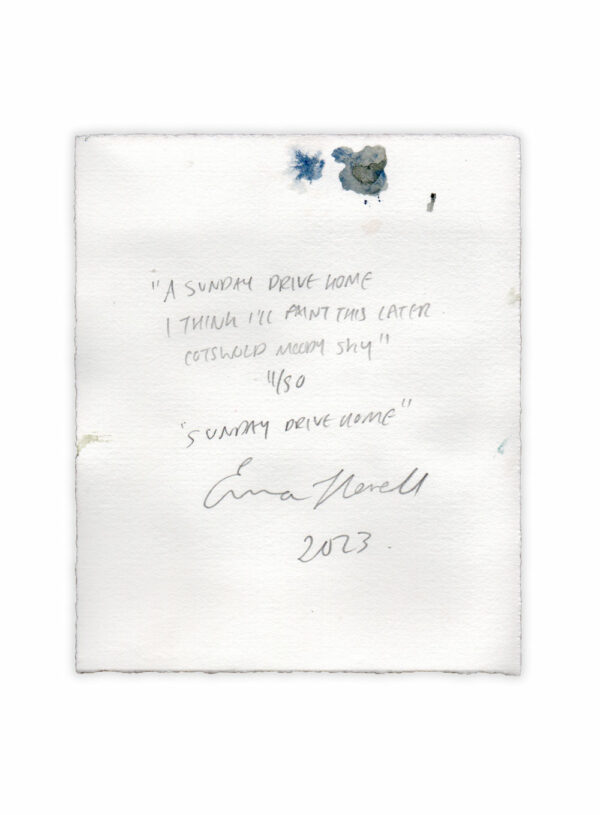 "A SUNDAY DRIVE HOME
I THINK I'LL PAINT THIS LATER
COTSWOLD MOODY SKY"
11/50
"SUNDAY DRIVE HOME"
Emma Howell
2023.